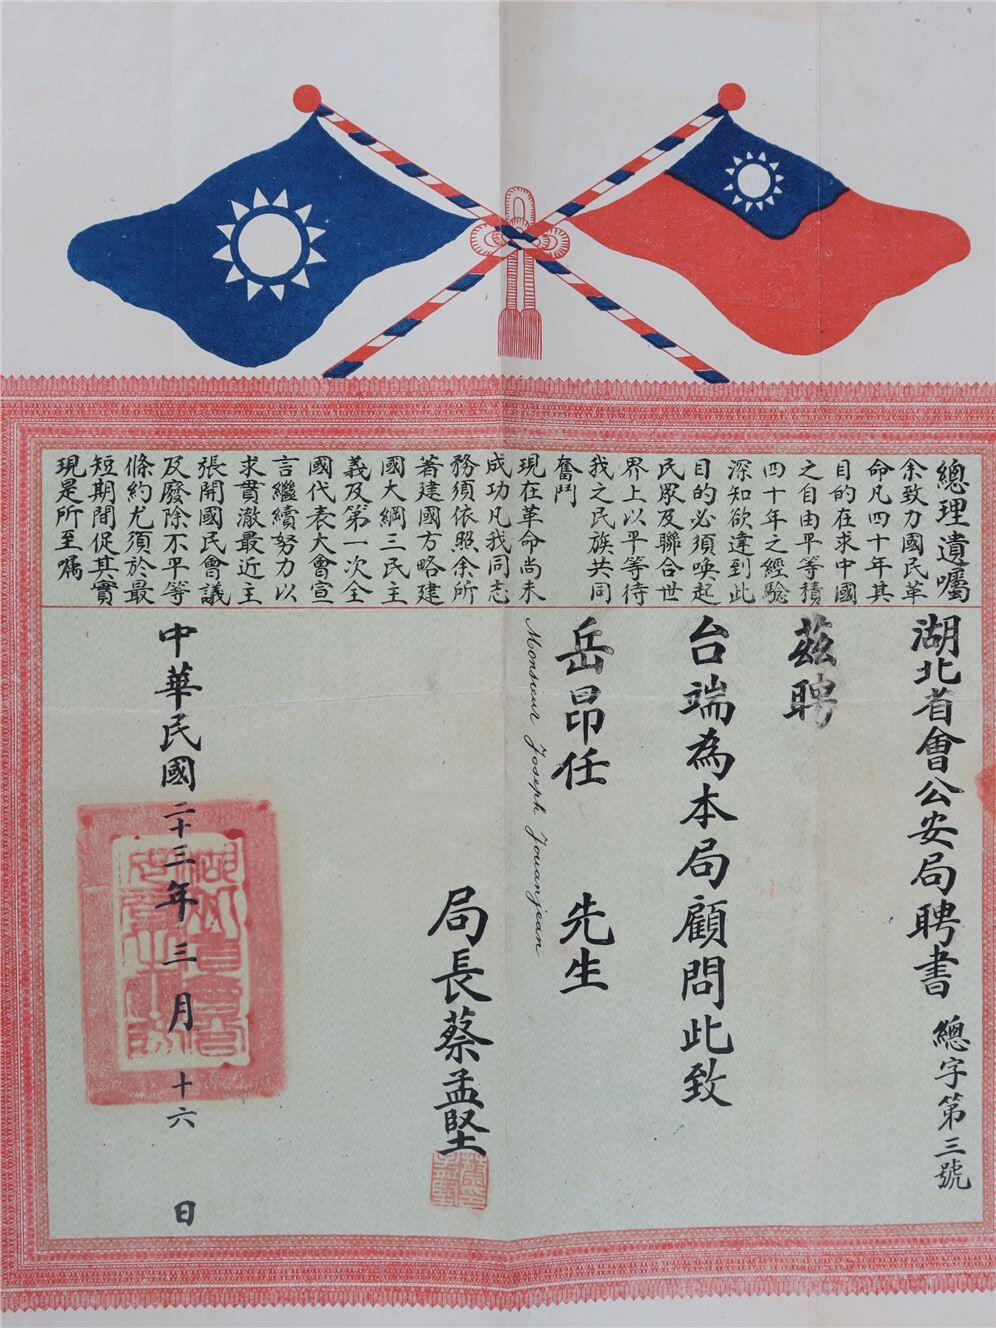 總理遺囑
余致力國民革
命凡四十年其
目的在求中國
之自由平等積
四十年之經驗
深知欲達到此
目的必須喚起
民眾及聯合世
界上以平等待
我之民族共同
奮鬥
現在革命尚未
成功凡我同志
務須依照余所
著建國方略建
國大綱三民主
義及第一次全
國代表大會宣
言繼續努力以
求貫澈最近主
張開國民會議
及廢除不平等
條約尤須於最
短期間促其實
現是所至囑
湖北省會公安局聘書 總字第三號
茲聘
台端為本局顧問此致
岳昂任 先生
Monsieur Joseph Jouanjean
局長蔡孟堅
中華民國二十三年三月十六日